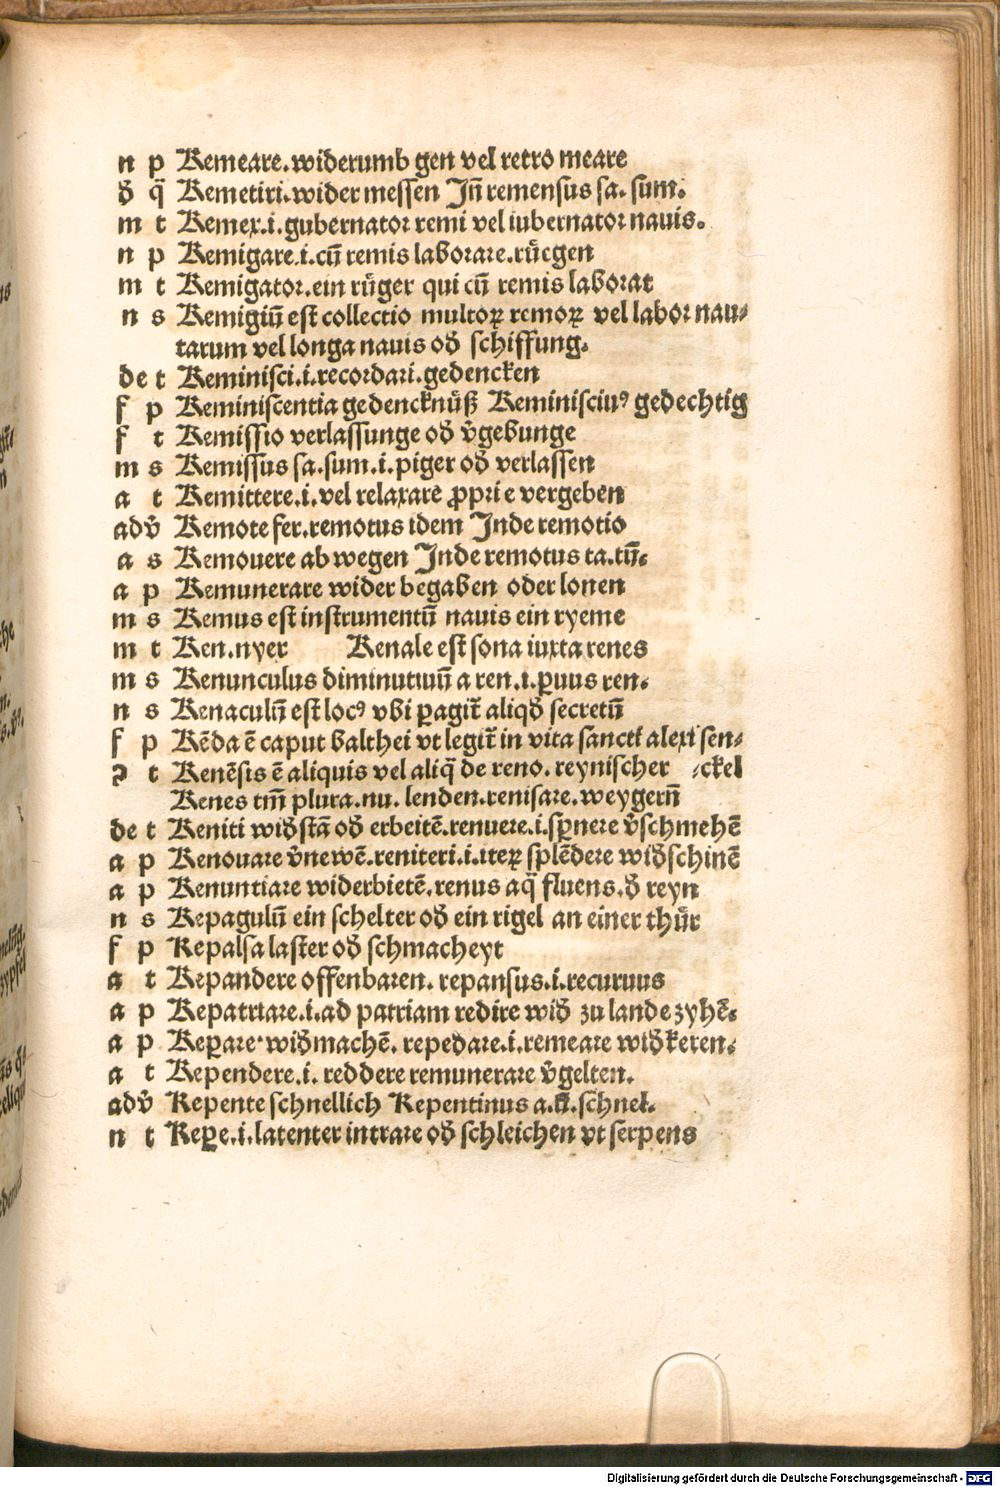 n p Remeare.widerumb gen vel retro meare
đ q̈ Remetiri.wider messen Jn̄ remensus sa. sum.
m t Remex.i.gubernator remi vel iubernator nauis.
n p Remigare.i.cū remis laborare.rüegen
m t Remigator.ein rüger qui cū remis laborat
n s Remigiū est collectio multoꝝ remoꝝ vel labor nau⸗
tarum vel longa nauis ođ schiffung.
de t Reminisci.i.recordari.gedencken
f p Reminiscentia gedencknüß Reminisciuꝰ gedechtig
f t Remissio verlassunge ođ v̄gebunge
m s Remissus sa.sum.i.piger ođ verlassen
a t Remittere.i.vel relaxare ꝓpri e vergeben
adv̄ Remote fer.remotus idem Jnde remotio
a s Remouere ab wegen Jnde remotus ta.tū.
a p Remunerare wider begaben oder lonen
m s Remus est instrumentū nauis ein ryeme
m t Ren.nyer Renale est sona iuxta renes
m s Renunculus diminutiuū a ren.i.ꝑuus ren.
n s Renaculū est locꝰ vbi ꝑagit̄ aliqđ secretū
f p Rēda ē caput balthei vt legit̄ in vita sancti alexi sen⸗
ꝯ t Renēsis ē aliquis vel aliq̄ de reno. reynischer ⸗ckel
Renes tm̄ plura.nu. lenden.renisare.weygern̄
de t Reniti wiđstā ođ erbeitē.renuere.i.sꝑnere v̄schmehē
a p Renouare v̄newē.reniteri.i.iteꝝ splēdere wiđschinē
a p Renuntiare widerbietē.renus aq̄ fluens.đ reyn
n s Repagulū ein schelter ođ ein rigel an einer thür
f p Repalsa laster ođ schmacheyt
a t Repandere offenbaren. repansus.i.recuruus
a p Repatriare.i.ad patriam redire wiđ zu lande zyhē.
a p Reꝑare wiđmachē. repedare.i.remeare wiđkeren.
a t Rependere.i. reddere remunerare v̄gelten.
adv̄ Repente schnellich Repentinus a.ū.schnel.
n t Reꝑe.i.latenter intrare ođ schleichen vt serpens
Digitalisierung gefördert durch die Deutsche Forschungsgemeinschaft - DFG